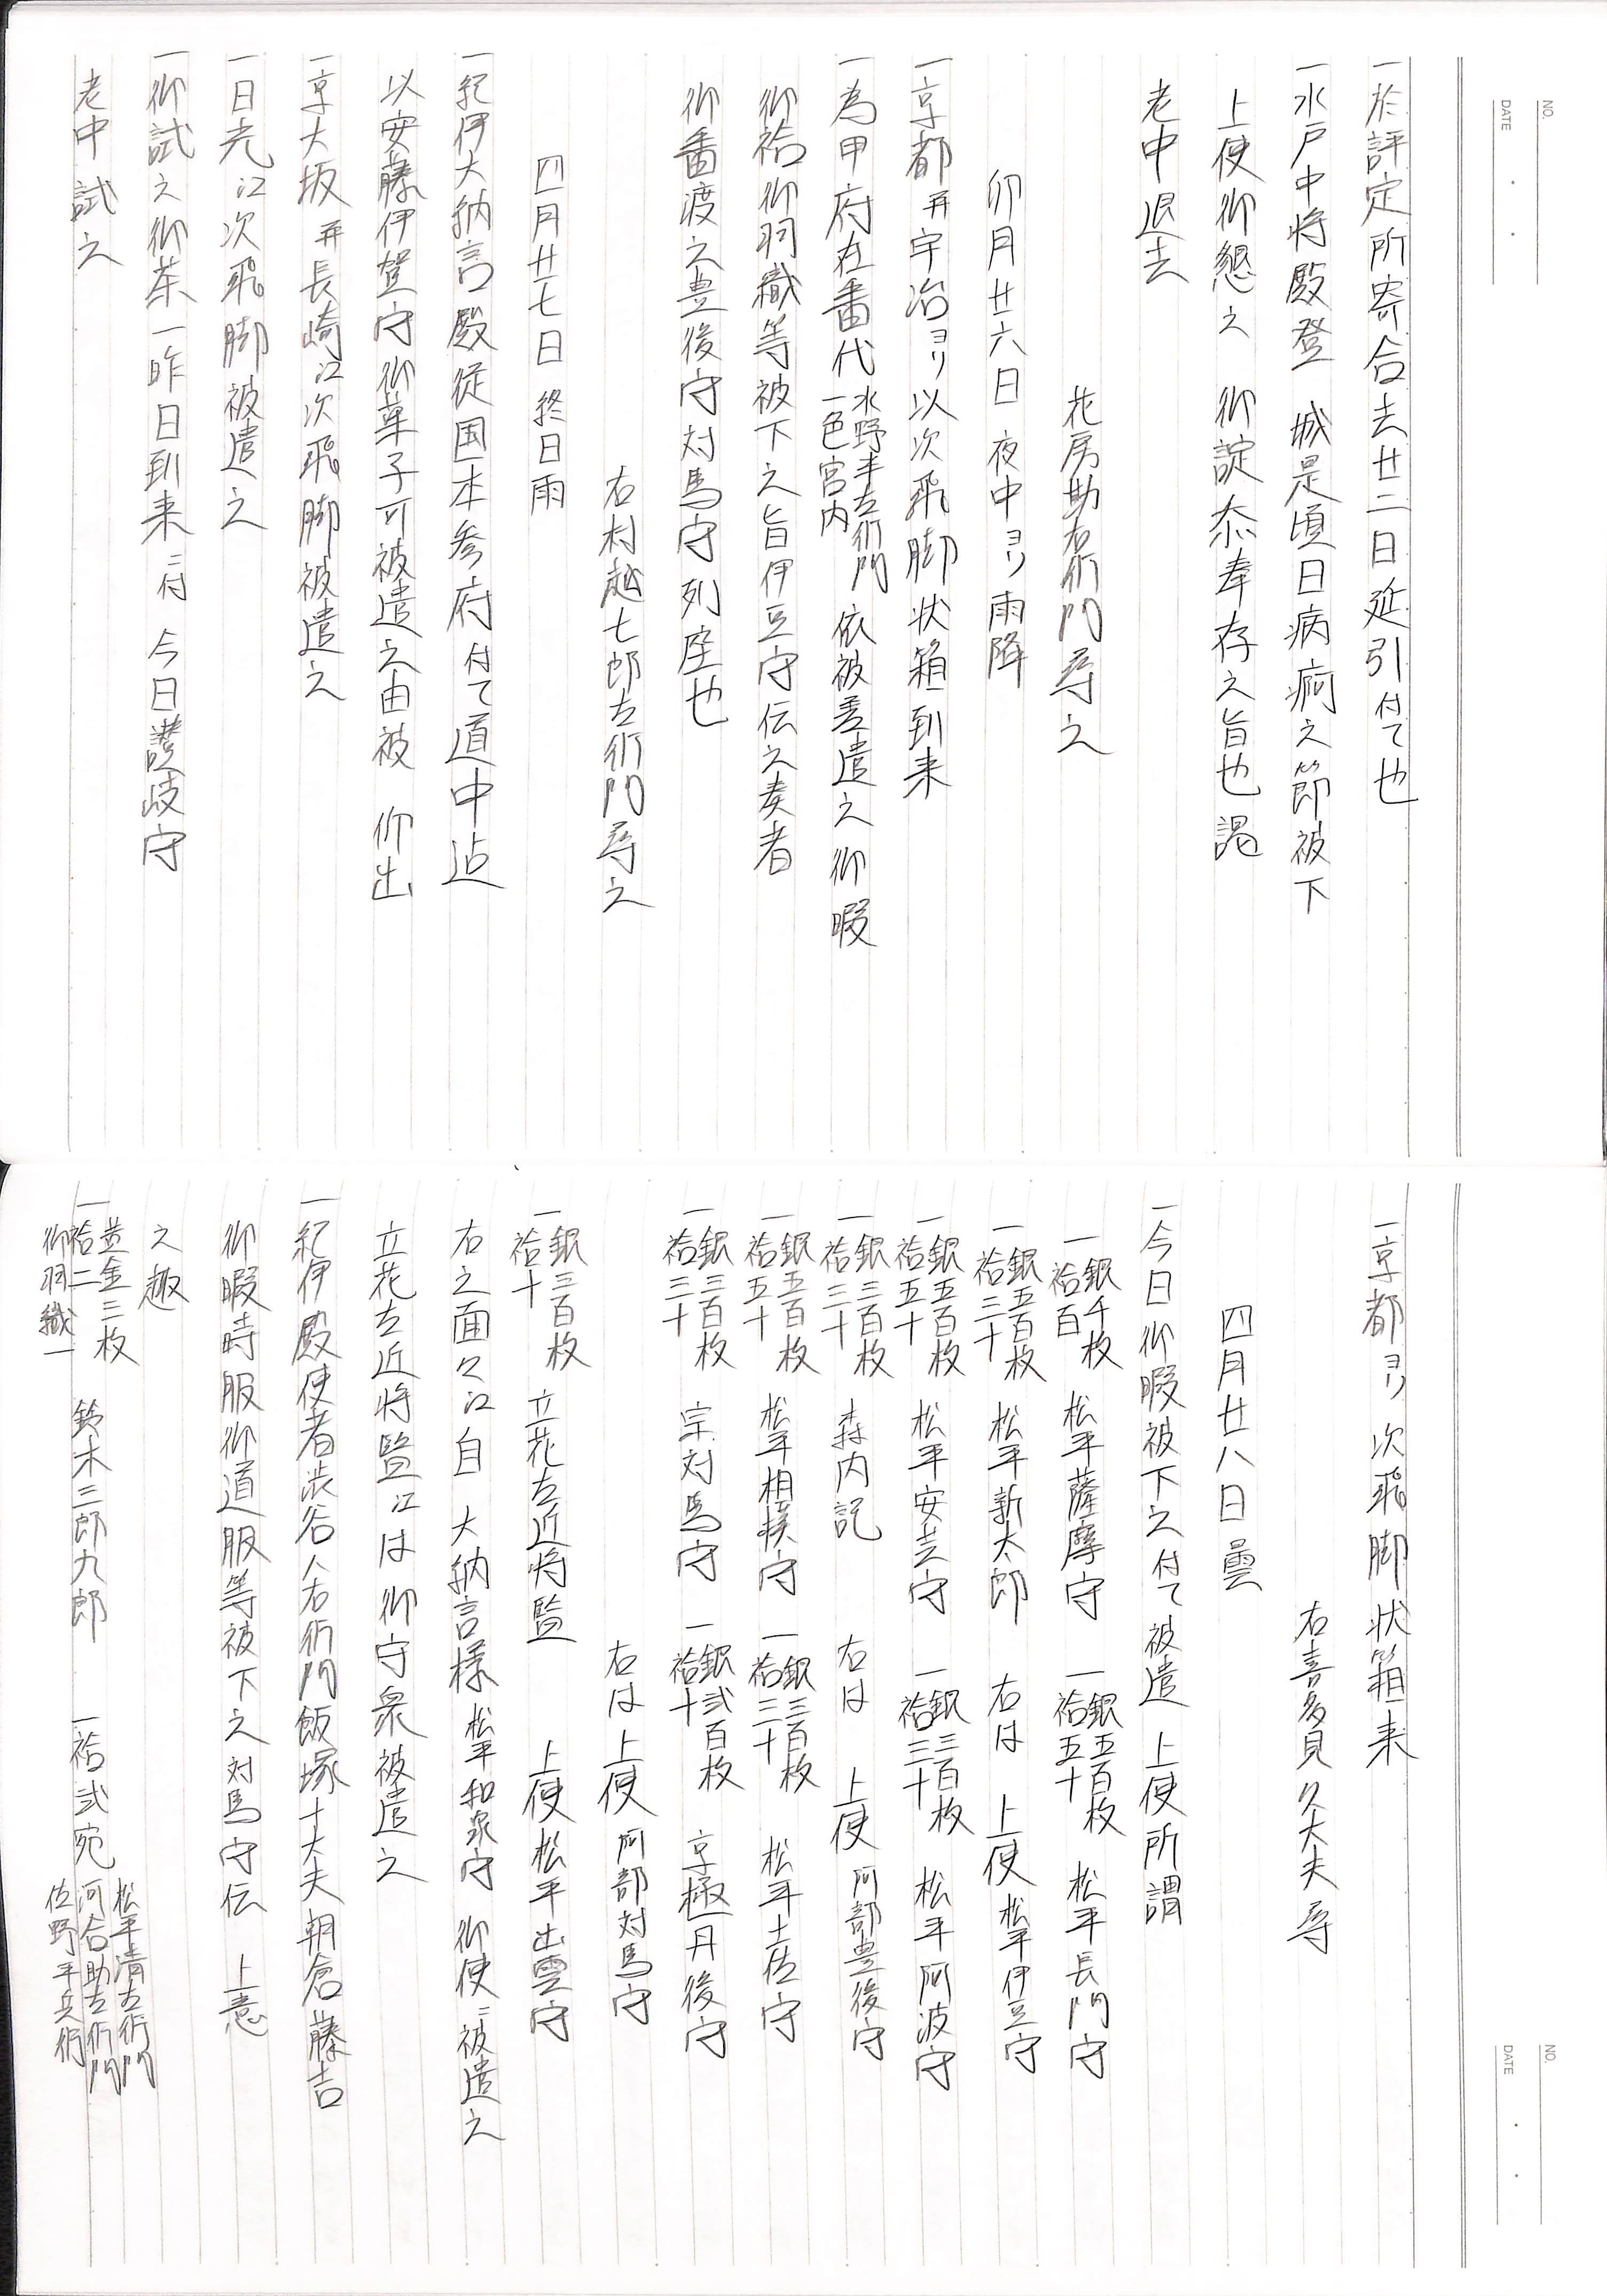 NO.
DATE
一於評定所寄合去廿二日延引付て也
一水戸中将殿登 城是頃日病痾之節被下
上使御懇之 御諚忝奉存之旨也謁
老中退去
花房勘右衛門尋之
卯月廿六日 夜中ヨリ雨降
一京都并宇治ヨリ以次飛脚状箱到来
一為甲府在番代 水野半左衛門 一色宮内 依被差遣之御暇
御袷御羽織等被下之旨伊豆守伝之奏者
御番渡之豊後守対馬守列座也
右村越七郎左衛門尋之
四月廿七日 終日雨
一紀伊大納言殿従国本参府付て道中迄
以安藤伊賀守御菓子可被遣之由被 仰出
一京大坂并長崎江次飛脚被遣之
一日光江次飛脚被遣之
一御試之御茶一昨日到来ニ付 今日讃岐守
老中試之
NO.
DATE
一京都ヨリ次飛脚状箱来
右喜多見久大夫尋
四月廿八日 曇
一今日御暇被下之付て被遣 上使所謂
一銀千枚 袷百 松平薩摩守 一銀五百枚 袷五十 松平長門守
一銀五百枚 袷三十 松平新太郎 右は 上使 松平伊豆守
一銀五百枚 袷五十 松平安芸守 一銀三百枚 袷三十 松平阿波守
一銀三百枚 袷三十 森内記 右は 上使 阿部豊後守
一銀五百枚 袷五十 松平相模守 一銀三百枚 袷三十 松平土佐守
一銀三百枚 袷三十 宗対馬守 一銀弐百枚 袷十 京極丹後守
右は 上使 阿部対馬守
一銀三百枚 袷十 立花左近将監 上使 松平出雲守
右之面々江自 大納言様 松平和泉守 御使ニ被遣之
立花左近将監江は御守衆被遣之
一紀伊殿使者渋谷人右衛門飯塚十大夫朝倉藤吉
御暇時服御道服等被下之対馬守伝 上意
之趣
一黄金三枚 袷二 御羽織一 鈴木三郎九郎 一袷弐宛 松平清左衛門 河合助左衛門 佐野平兵衛